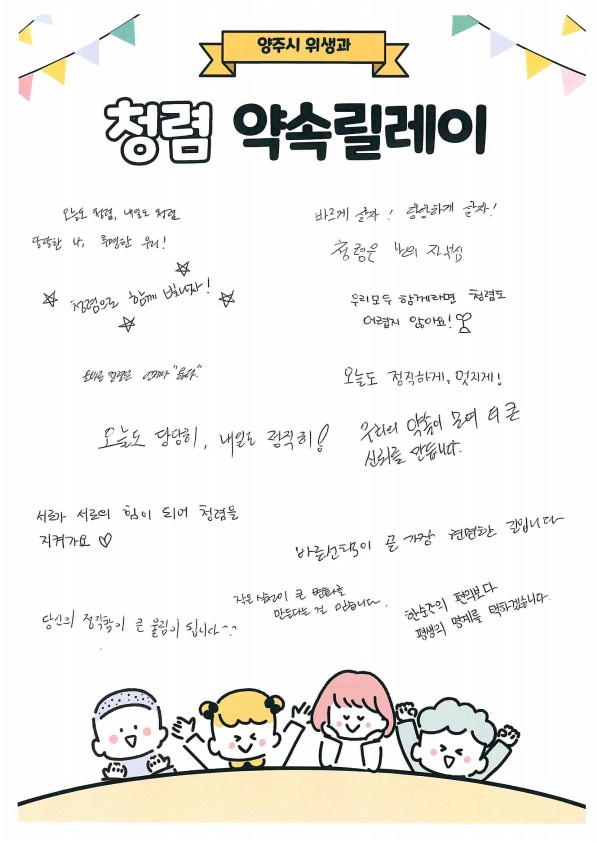 양주시 위생과
청렴 약속릴레이
오늘도 청렴, 내일도 청렴
당당한 나, 투명한 우리!
바르게 살자! 당당하게 살자!
청렴은 나의 자부심
청렴으로 함께 빛나자!
우리모두 함께라면 청렴도
어렵지 않아요!
언제나 "옳다."
오늘도 정직하게, 멋지게!
오늘도 당당히, 내일도 정직히!
우리의 약속이 모여 더 큰
신뢰를 만듭니다.
서로가 서로의 힘이 되어 청렴을
지켜가요 ♡
바른선택이 곧 가장 현명한 길입니다
작은 실천이 큰 변화를
만든다는 걸 믿습니다.
당신의 정직함이 큰 울림이 됩니다^^
한순간의 편의보다
평생의 명예를 택하겠습니다.